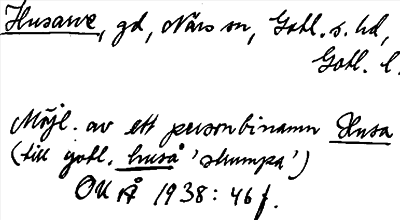 Husarve, gd, Närs sn, Gotl. s. hd,
Gotl. l.
Möjl. av ett personbinamn Husa
(till gotl. huså 'skumpa')
OUÅ 1938: 46 f.